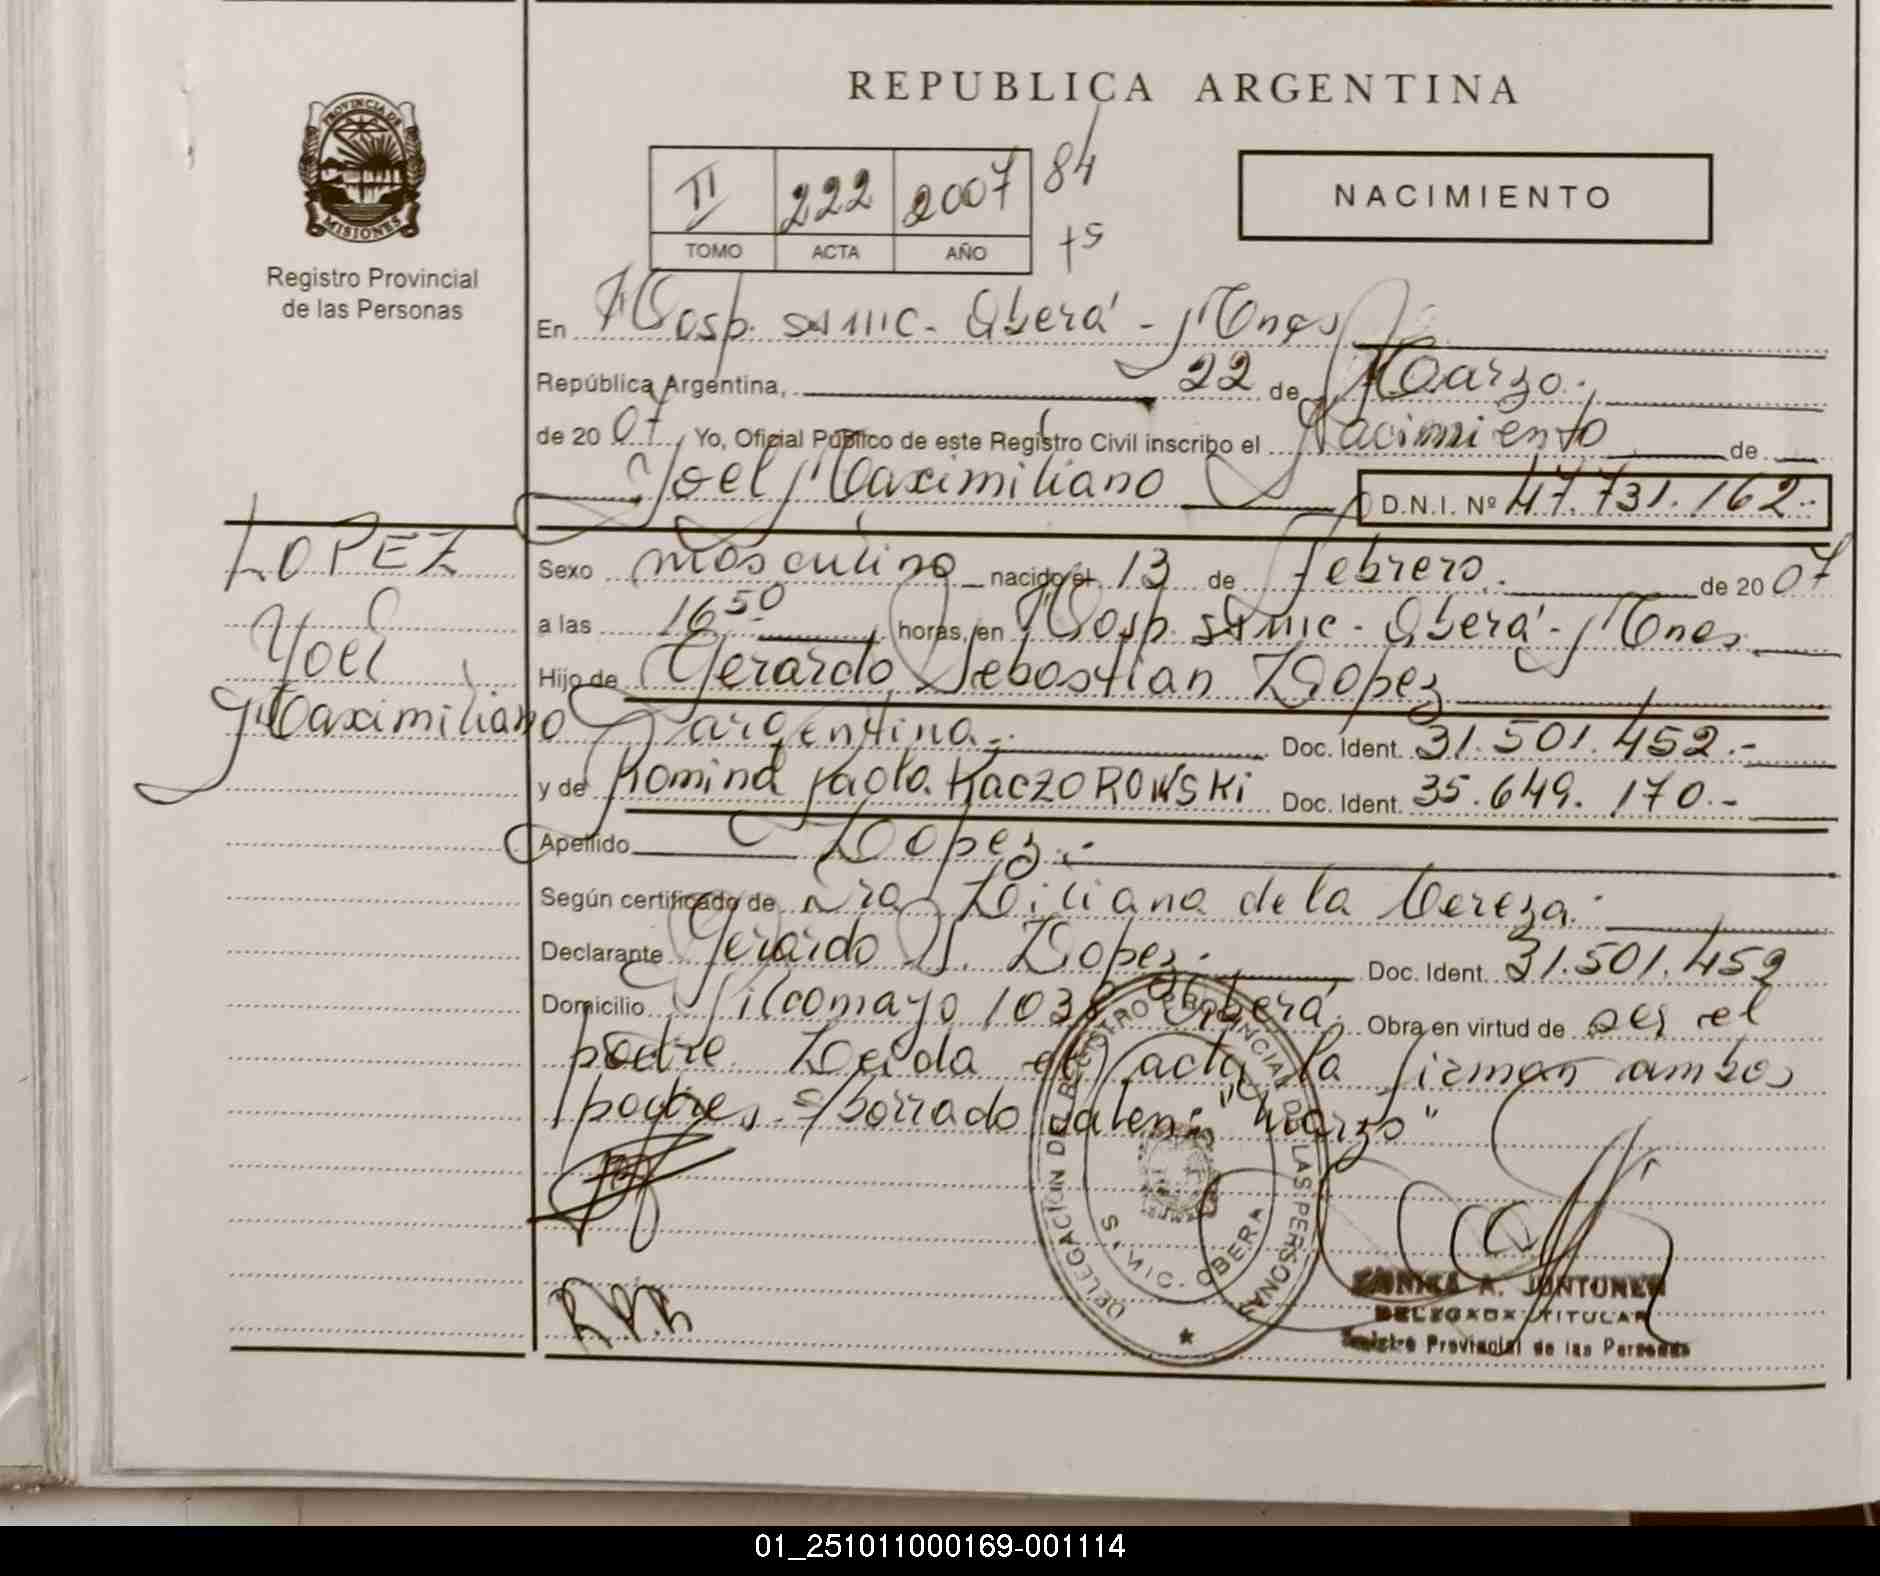 REPUBLICA ARGENTINA
PROVINCIA DE
MISIONES
Registro Provincial
de las Personas
II 222 2007 84
TOMO ACTA AÑO
NACIMIENTO
En Hosp. SAMIC - Oberá - Mnes
República Argentina, 22 de Marzo.
de 20 07 Yo, Oficial Público de este Registro Civil inscribo el Nacimiento de
Yoel Maximiliano D.N.I. Nº 47.731.162.-
LOPEZ
Yoel
Maximiliano
Sexo masculino nacido el 13 de febrero. de 20 07
a las 16 50 horas, en Hosp. SAMIC - Oberá - Mnes.
Hijo de Gerardo Sebastian Lopez
argentina.- Doc. Ident. 31.501.452.-
y de Romina Paola KACZOROWSKi Doc. Ident. 35.649.170.-
Apellido Lopez.-
Según certificado de Dra Liliana de la Vereza.-
Declarante Gerardo S. Lopez.- Doc. Ident. 31.501.452
Domicilio Pilcomayo 1038 Oberá. Obra en virtud de ser el
padre Leida el acta la firman ambos
padres. S/borrado valen: "Marzo"
DELEGACION DEL REGISTRO PROVINCIAL DE LAS PERSONAS
OBERA
A. JUNTUNEN
DELEGADA TITULAR
Registro Provincial de las Personas
01_251011000169-001114